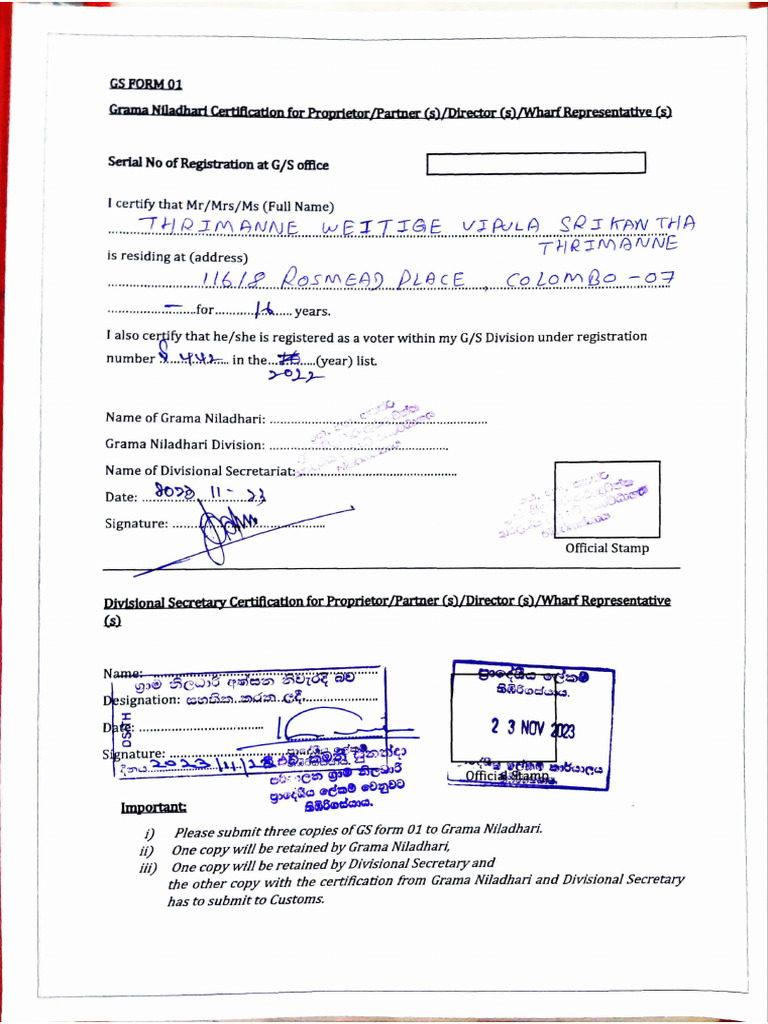 GS FORM 01
Grama Niladhari Certification for Proprietor/Partner (s)/Director (s)/Wharf Representative (s)
Serial No of Registration at G/S office
I certify that Mr/Mrs/Ms (Full Name)
THRIMANNE WEITIGE VIPULA SRIKANTHA
THRIMANNE
is residing at (address)
116/8 ROSMEAD PLACE, COLOMBO -07
– for 16 years.
I also certify that he/she is registered as a voter within my G/S Division under registration
number 442 in the (year) list.
2022
Name of Grama Niladhari:
Grama Niladhari Division:
Name of Divisional Secretariat:
Date: 2023 11 - 23
Signature:
Official Stamp
Divisional Secretary Certification for Proprietor/Partner (s)/Director (s)/Wharf Representative
(s)
Name:
ග්‍රාම නිලධාරී අත්සන නිවැරදි බව
ප්‍රාදේශීය ලේකම්
තිඹිරිගස්යාය.
Designation: සහතික කරන ලදී.
Date:
23 NOV 2023
DS/TH
Signature:
ප්‍රාදේශීය ලේකම්
දිනය 2023/11/23
ග්‍රාම නිලධාරී
ප්‍රාදේශීය ලේකම් වෙනුවට
තිඹිරිගස්යාය.
ලේකම් කාර්යාලය
Official Stamp
තිඹිරිගස්යාය.
Important:
i) Please submit three copies of GS form 01 to Grama Niladhari.
ii) One copy will be retained by Grama Niladhari,
iii) One copy will be retained by Divisional Secretary and
the other copy with the certification from Grama Niladhari and Divisional Secretary
has to submit to Customs.